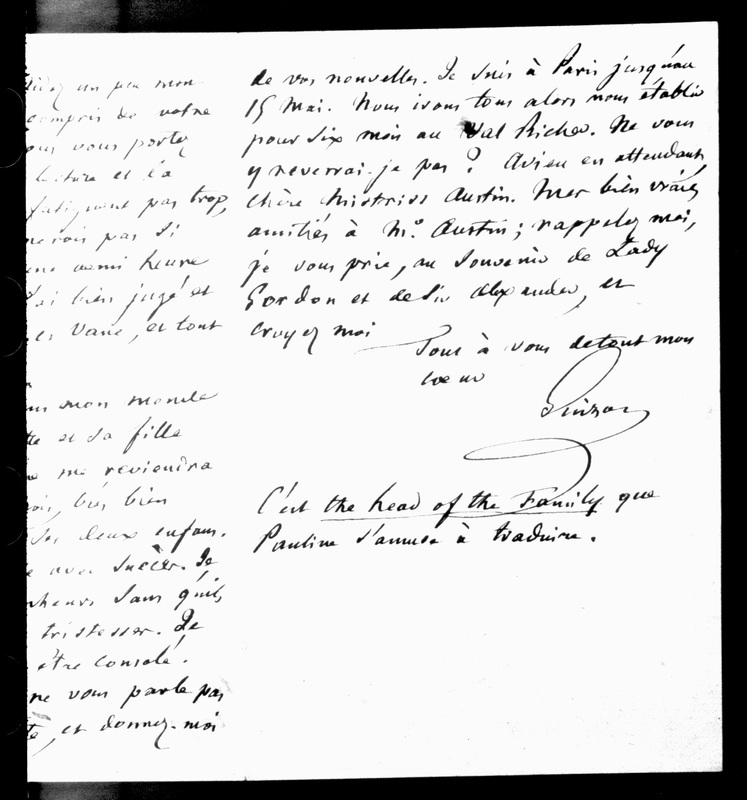 un peu mon
compris de votre
vous portez
lecture et la
fatiguent pas trop,
pas si
demi heure
bien jugé et
Vane, et tout
mon monde
et sa fille
me reviendra
bien
deux enfans.
avec succès. Je
sans qu'ils
tristesses. Je
être consolé.
ne vous parle pas
et donnez-moi
de vos nouvelles. Je suis à Paris jusqu'au
15 Mai. Nous irons tous alors nous établir
pour six mois au Val Richer. Ne vous
y reverrai-je pas ? Adieu en attendant,
chère Mistriss Austin. Mes bien vraies
amitiés à Mr. Austin ; rappelez moi,
je vous prie, au souvenir de Lady
Gordon et de Sir Alexander, et
croyez moi
Tout à vous de tout mon
coeur
Guizot
C'est the head of the Family que
Pauline s'amuse à traduire.